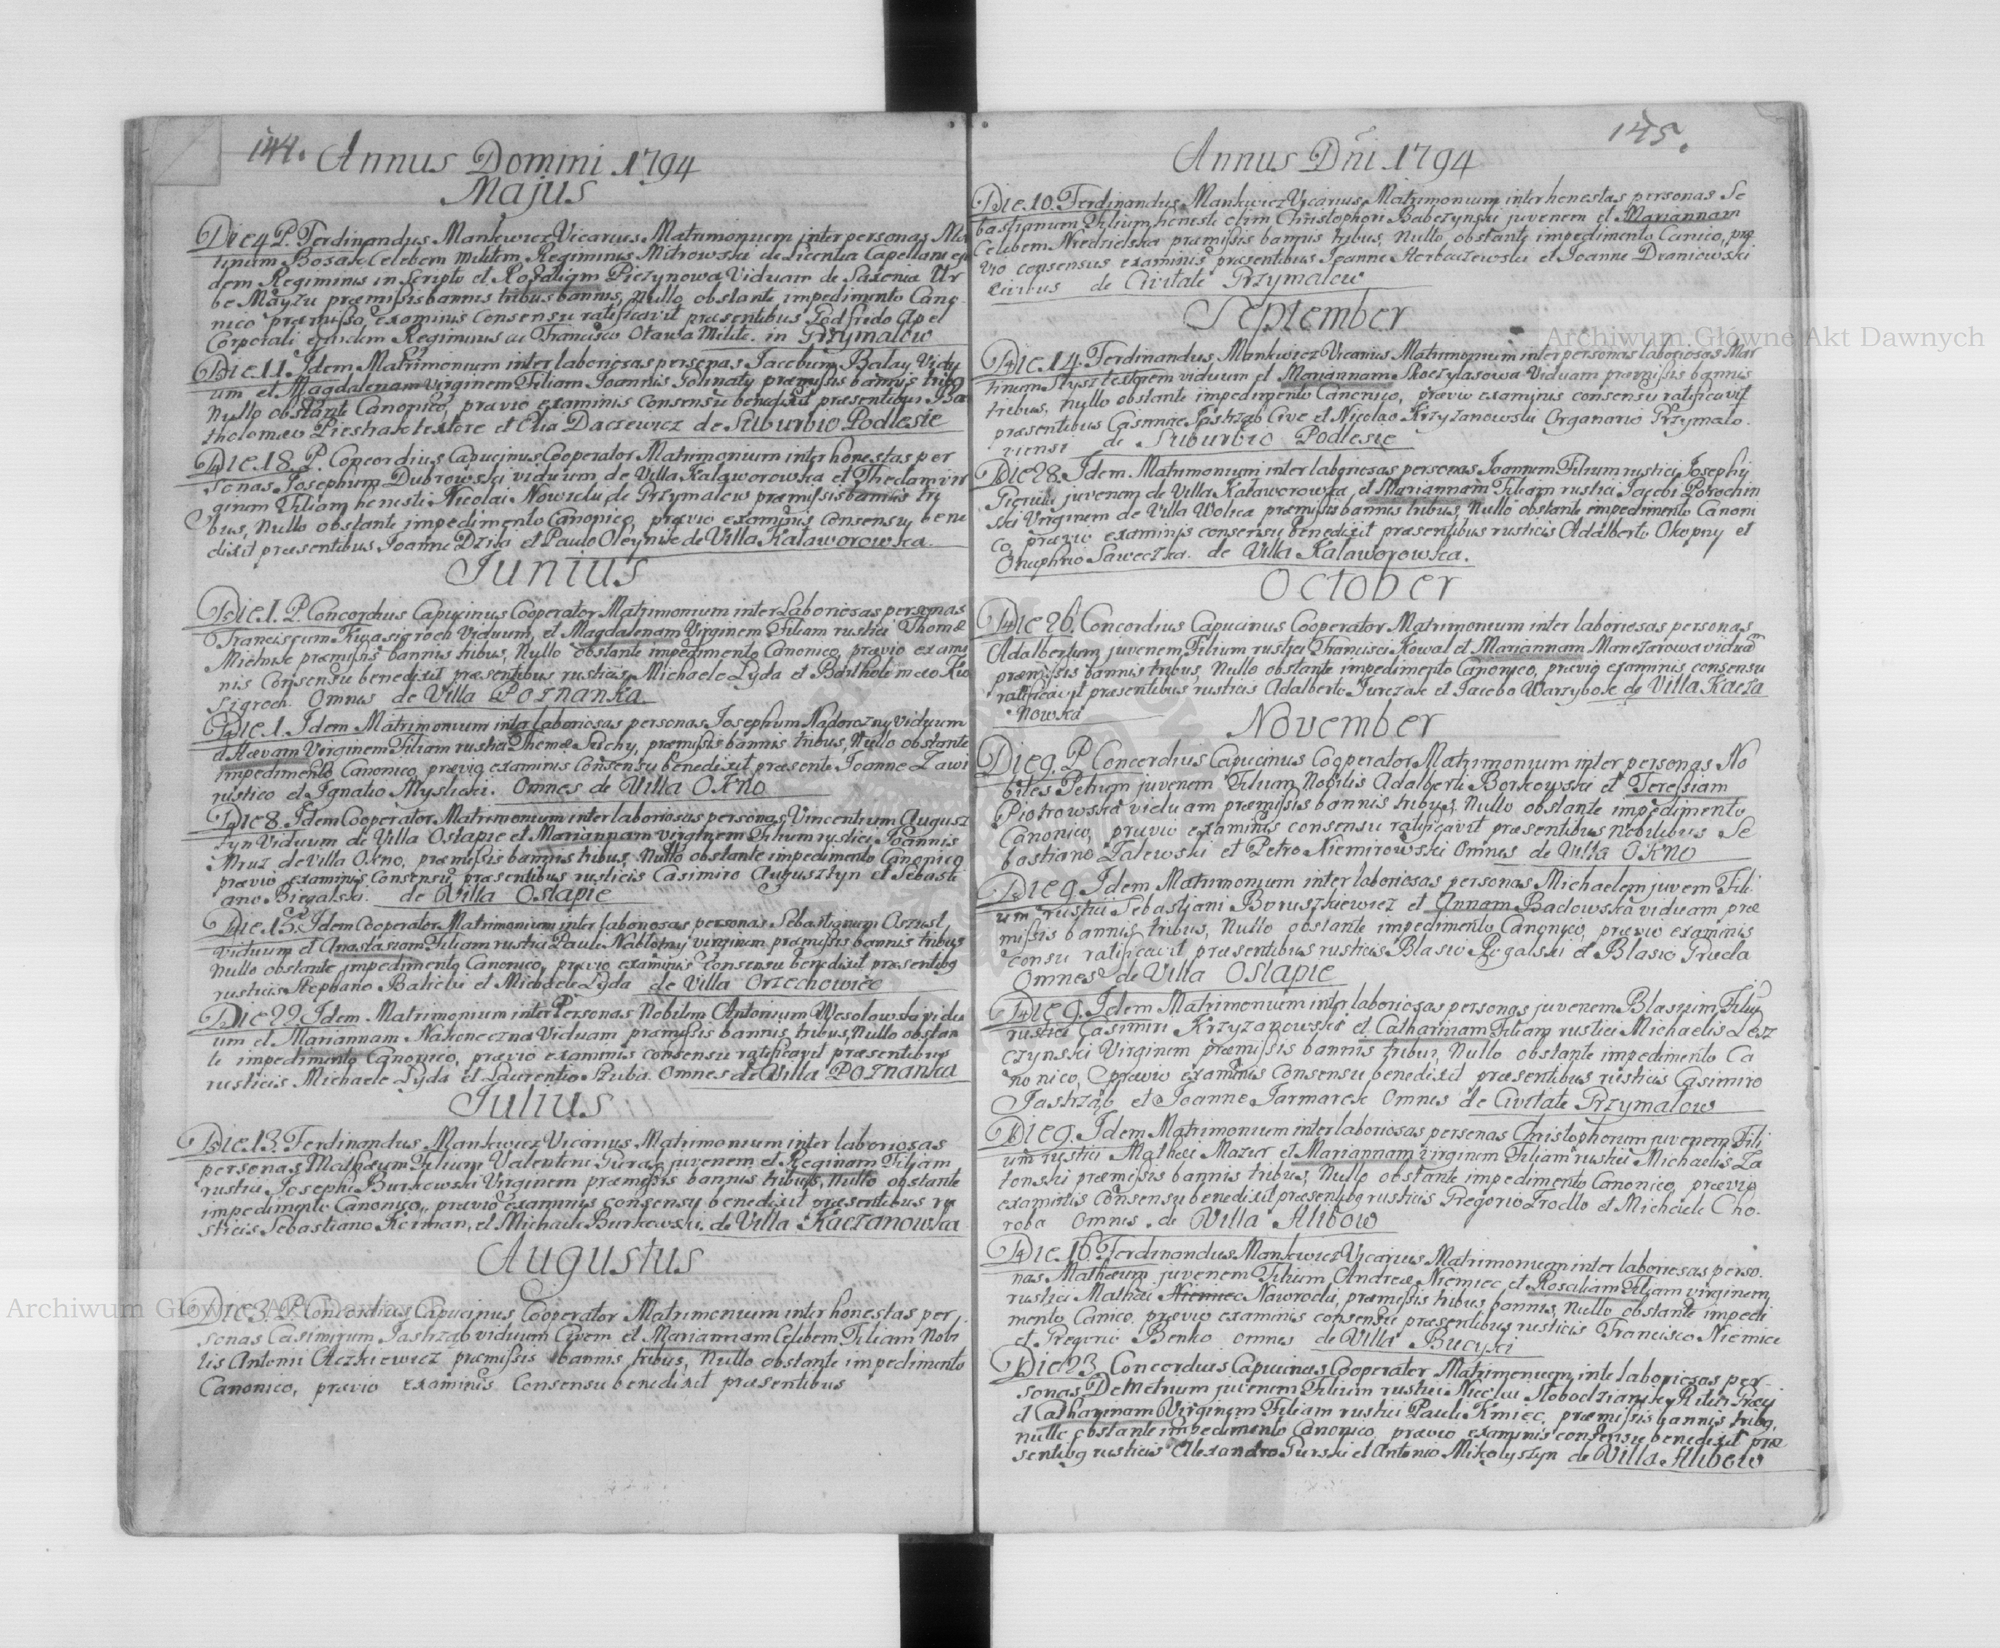 144.
Annus Domini 1794
Majus
Die 4 P. Ferdinandus Mankiwicz Vicarius Matrimonium inter personas Mar
tinum Bosak Celebem Militem Regiminis Mitrowski de Licentia Capellani ejus
dem Regiminis in Scripto et Rosaliam Piczynowa Viduam de Saxonia Ur
be Mayzu præmissis bannis tribus bannis, Nullo obstante impedimento Cano
nico præmisso, examinis Consensu ratificavit præsentibus Godfredo Apel
Corporali ejusdem Regiminis ac Francisco Otawa Milite. in Grzymalow
Die 11. Idem Matrimonium inter laboriosas personas Jacobum Balay Vidu
um et Magdalenam virginem Filiam Joannis præmissis bannis tribg
Nullo obstante Canonico, prævio examinis Consensu benedixit præsentibus Bar
tholomæo Piestrak textore et Elia Daczewicz de Suburbio Podlesie
Die 18. P. Concordius Capucinus Cooperator Matrimonium inter honestas per
sonas Josephum Dubrowski viduum de Villa Kalaworowka et Theclam vir
ginem Filiam honesti Nicolai Nowicki, de Grzymalow præmissis bannis tri
bus, Nullo obstante impedimento Canonico, prævio examinis Consensu bene
dixit præsentibus Joanne Dziga et Paulo Oleynik de Villa Kalaworowka.
Junius
Die 1. P. Concordius Capucinus Cooperator Matrimonium inter Laboriosas personas
Franciscum Kiwasigroch Viduum, et Magdalenam Virginem Filiam rustici Thomæ
præmissis bannis tribus, Nullo obstante impedimento Canonico, prævio exami
nis Consensu benedixit præsentibus rusticis Michaele Lyda et Bartholomæo Kiwa
sigroch. Omnes de Villa Poznanka
Die 1. Idem Matrimonium inter laboriosas personas Josephum Nadorozny Viduum
et Hævam Virginem Filiam rustici Thomæ Suchy, præmissis bannis tribus, Nullo obstante
impedimento Canonico, prævio examinis Consensu benedixit præsente Joanne Zawi
rustico et Ignatio Mysliski. Omnes de Villa Okno
Die 8. Idem Cooperator Matrimonium inter laboriosas personas Vincentium Augusz
tyn Viduum de Villa Ostapie et Mariannam virginem Filium rustici Joannis
Mruz de Villa Okno, præmissis bannis tribus, Nullo obstante impedimento Canonico
prævio examinis Consensu, præsentibus rusticis Casimiro Augusztyn et Sebasti
ano Biegalski. de Villa Ostapie
Die 15. Idem Cooperator Matrimonium inter laboriosas personas Sebastianum
viduum et Anastasiam Filiam rustici Pauli Nablotny virginem præmissis bannis tribus
Nullo obstante impedimento Canonico, prævio examinis consensu benedixit præsentibg
rusticis Stephano Balicki et Michaele Lyda de Villa Orzechowiec
Die 22. Idem Matrimonium inter Personas Nobilem Antonium Wesolowski vidu
um et Mariannam Nakoneczna Viduam præmissis bannis tribus, Nullo obstan
te impedimento Canonico, prævio examinis consensu ratificavit præsentibus
rusticis Michaele Lyda et Laurentio Szuba. Omnes de Villa Poznanka
Julius
Die 13. Ferdinandus Mankiwicz Vicarius Matrimonium inter laboriosas
personas Mathæum Filium Valentini Gurac juvenem et Reginam Filiam
rustici Josephi Burkowski Virginem præmissis bannis tribus, Nullo obstante
impedimento Canonico, prævio examinis consensu benedixit præsentibus ru
sticis Sebastiano Kerman, et Michaele Burkowski, de Villa Kaczanowka
Augustus
Die 3. P. Concordius Capucinus Cooperator Matrimonium inter honestas per
sonas Casimirum Jastrząb viduum Civem et Mariannam Celebem Filiam Nobi
lis Antonii præmissis bannis tribus, Nullo obstante impedimento
Canonico, prævio examinis Consensu benedixit præsentibus
145.
Annus Dñi 1794
Die 10. Ferdinandus Mankiwicz Vicarius Matrimonium inter honestas personas Se
bastianum Filium honesti olim Christophori Babczynski juvenem et Mariannam
Celebem Niedzielska præmissis bannis tribus, Nullo obstante impedimento Canico, præ
vio consensus examinis præsentibus Joanne Horbaczewski et Joanne Draniowski
Civibus de Civitate Grzymalow
September
Die 14. Ferdinandus Mankiwicz Vicarius Matrimonium inter personas laboriosas Mar
tinum Hysz textorem viduum et Mariannam Skoczylasowa Viduam præmissis bannis
tribus, nullo obstante impedimento Canonico, prævio examinis consensu ratificavit
præsentibus Casimiro Jastrząb Cive et Nicolao Krzyzanowski Organario Grzymalo
viensi de Suburbio Podlesie
Die 28. Idem Matrimonium inter laboriosas personas Joannem Filium rustici Josephi
juvenem de Villa Kalaworowka, et Mariannam Filiam rustici Jacobi Porochin
ski Virginem de Villa Wolica præmissis bannis tribus, Nullo obstante impedimento Canoni
co, prævio examinis consensu benedixit præsentibus rusticis Adalberto Okopny et
Onuphrio Saweczka. de Villa Kalaworowka.
October
Die 26. Concordius Capucinus Cooperator Matrimonium inter laboriosas personas
Adalbertum juvenem Filium rustici Francisci Kowal et Mariannam Maneżarowa viduã
præmissis bannis tribus, Nullo obstante impedimento Canonico, prævio examinis consensu
ratificavit præsentibus rusticis Adalberto Jurczak et Jacobo Warzybok de Villa Kacza
nowka
November
Die 9. P. Concordius Capucinus Cooperator Matrimonium inter personas No
biles Petrum juvenem Filium Nobilis Adalberti Borkowski et Teressiam
Piotrowska viduam præmissis bannis tribus, Nullo obstante impedimento
Canonico, prævio examinis consensu ratificavit præsentibus nobilibus Se
bastiano Zalewski et Petro Niemirowski Omnes de Villa Okno
Die 9. Idem Matrimonium inter laboriosas personas Michaelem juvem Fili
um rustici Sebastiani Boruszkiewicz et Annam Badowska viduam præ
missis bannis tribus, Nullo obstante impedimento Canonico, prævio examinis
consu ratificavit præsentibus rusticis Blasio Rygalski et Blasio Grucla
Omnes de Villa Ostapie
Die 9. Idem Matrimonium inter laboriosas personas juvenem Blasium Filiũ
rustici Casimiri Krzyzanowski et Catharinam Filiam rustici Michaelis Lesz
czynski Virginem præmissis bannis tribus, Nullo obstante impedimento Ca
nonico, prævio examinis Consensu benedixit præsentibus rusticis Casimiro
Jastrząb et Joanne Jarmarek Omnes de Civitate Grzymalow
Die 9. Idem Matrimonium inter laboriosas personas Christophorum juvenem Fili
um rustici Mathæi Mazur et Mariannam virginem Filiam rustici Michaelis Za
tonski præmissis bannis tribus, Nullo obstante impedimento Canonico, prævio
examinis Consensu benedixit præsentibg rusticis Gregorio Frodlo et Michaele Cho
roba Omnes de Villa Hlibow
Die 16. Ferdinandus Mankiwicz Vicarius Matrimonium inter laboriosas perso
nas Mathæum juvenem Filium Andreæ Niemiec et Rosaliam Filiam virginem
rustici Mathæi Niemiec Nawrocki, præmissis tribus bannis, Nullo obstante impedi
mento Canico, prævio examinis consensu præsentibus rusticis Francisco Niemiec
et Gregorio Benko omnes de Villa Bucyki
Die 23. Concordius Capucinus Cooperator Matrimonium inte laboriosas per
sonas Demetrium juvenem Filium rustici Nicolai Slobodzianskÿ Ritus Græci
et Catharinam Virginem Filiam rustici Pauli Kmiec, præmissis bannis tribg,
nullo obstante impedimento Canonico, prævio examinis consensu benedixit præ
sentibg rusticis Alexandro Gurski et Antonio Mikolyszyn de Villa Hlibow
Archiwum Główne Akt Dawnych
Archiwum Główne Akt Dawnych